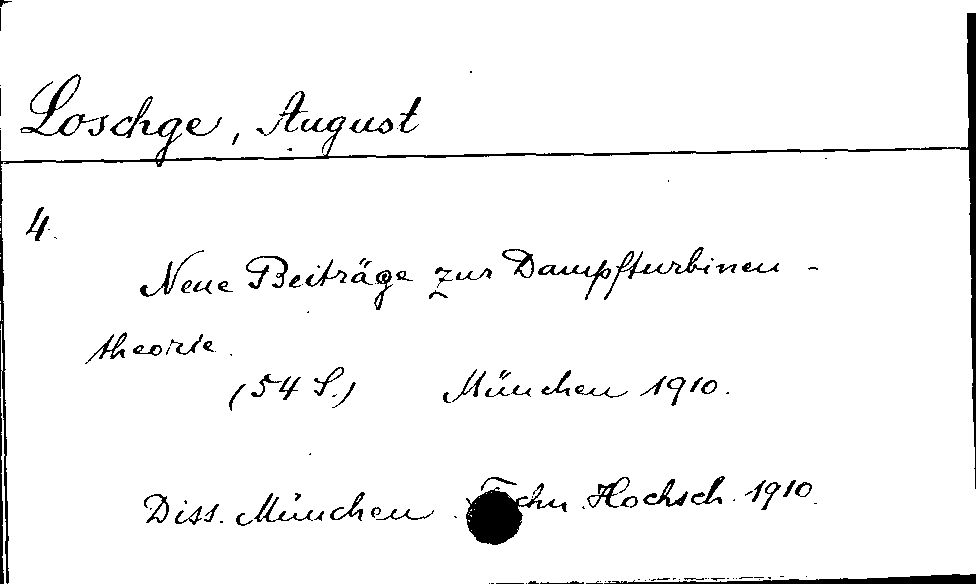 Loschge, August
4.
Neue Beiträge zur Dampfturbinen-
theorie.
(54 S.) München 1910.
Diss. München. Techn. Hochsch. 1910.